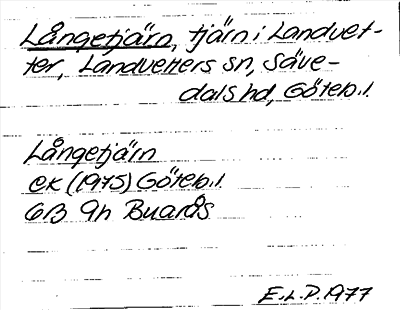 Långetjärn, tjärn i Landvet-
ter, Landvetters sn, Säve-
dals hd, Göteb.l.
Långetjärn
EK (1975) Göteb.l.
6B 9h Buarås
E.L.P. 1977